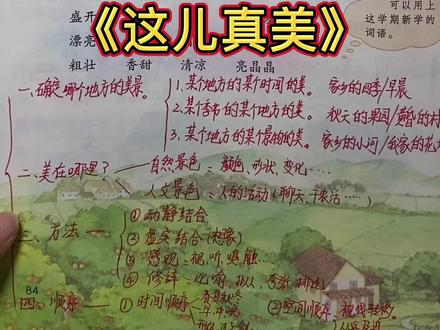 《这儿真美》
盛开
可以用上
这学期新学的
词语。
漂亮
粗壮 香甜 清凉 亮晶晶
一、确定哪个地方的美景。
1、某个地方的某个时间的美。 家乡的四季/早晨
2、某个季节的某个地方的美。 秋天的果园/黄昏的村
3、某个地方的某个景物的美。 家乡的小河/我家的花
二、美在哪里?
自然景色:颜色、形状、变化……
人文景色:人的活动(聊天、干农活……)
三、方法
①动静结合
②虚实结合(想象)
③感观:视、听、嗅、触…
④修辞:比喻、拟人、夸张、排比
84
四、顺序
①时间顺序
春夏秋冬
②空间顺序